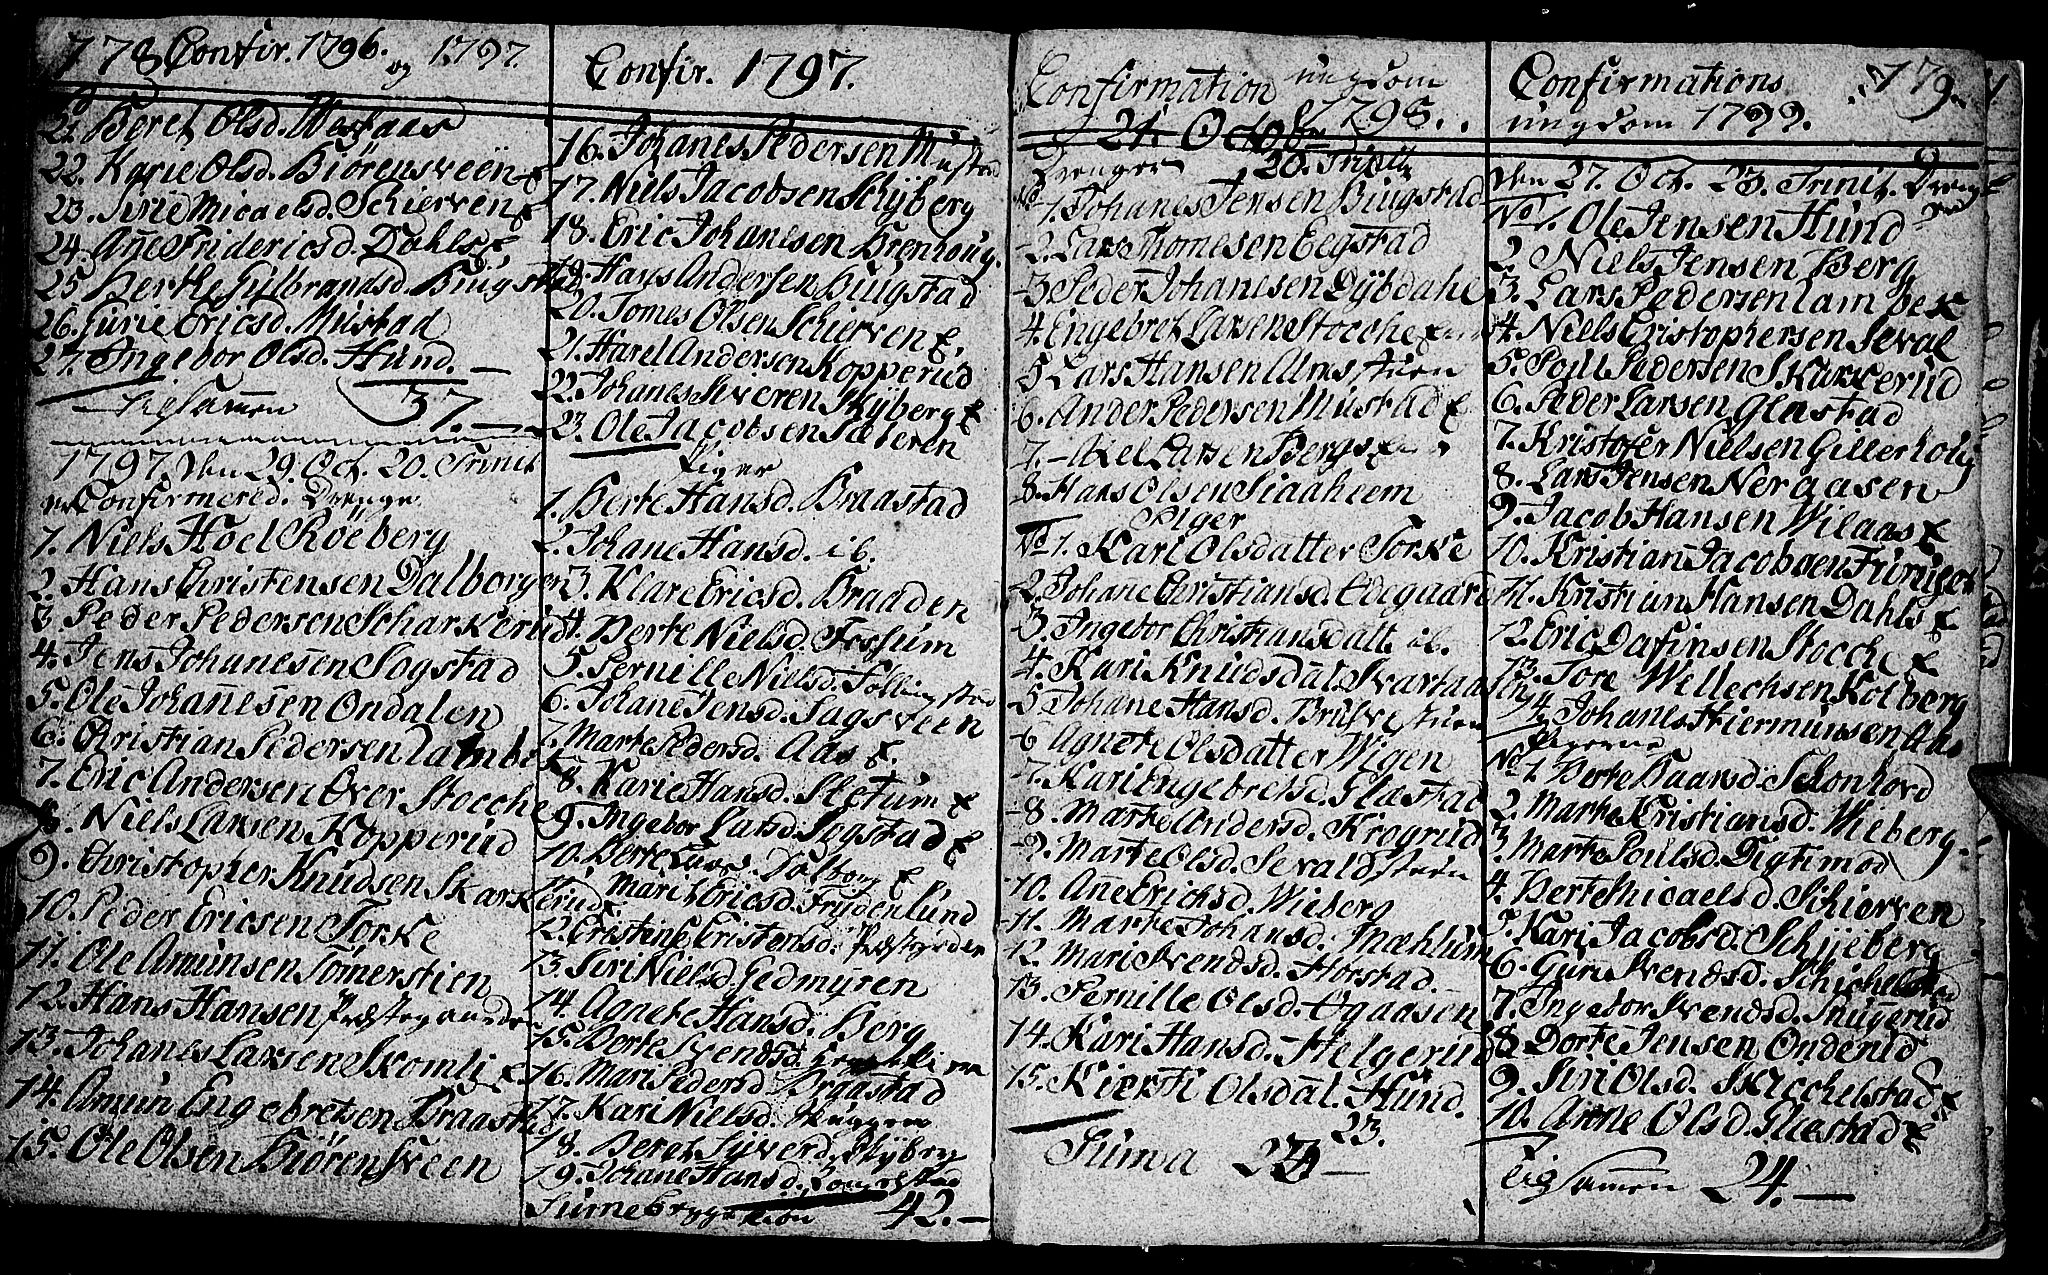 178 Confir. 1796. og 1797.
21. Beret Olsd. Westaas
22. Karie Olsd. Biørensveen
23. Sirie Micaelsd. Schierven
24. Añe Fridericsd. Dahls
25 Berte Gulbrandsd. Buigstad
26. Gurie Ericsd. Mustad
27. Ingebor Olsd. Hund. —
37. —
1797. den 29. Oct. 20. Trinit
er Confirmered. Drenge
1. Niels Hoel Røeberg
2. Hans Christensen Dalborgen
3. Peder Pedersen Scharkerud
4. Jens Johanesen Sogstad
5. Ole Johañesen Ondalen
6. Christian Pedersen Lambek
7. Eric Andersen Over Stocche
8. Niels Larsen Kopperud
9. Christopher Knudsen Skarkerud
10. Peder Ericsen Torke
11. Ole Amunsen Tømerstien
12. Hans Hansen Præstegaarden
13. Johanes Larsen Skomli
14. Amun Engebretsen Braastad
15. Ole Olsen Biørensveen
Confir. 1797.
16. Johanes Pedersen Mustad
17. Niels Jacobsen Schyberg
18. Eric Johanesen Brenhoug.
19. Hans Andersen Buigstad
20. Tomes Olsen Schierven
21. Harel Andersen Kopperud
22. Johanes Sveren Skyberg
23. Ole Jacobsen Sæberen
Piger
1. Berte Hansd. Braastad
2. Johane Hansd. ib.
3. Klare Ericsd. Braaden
4. Berte Nielsd. Fossum
5. Pernille Nielsd. Følling stad
6. Johane Jensd. Sagsveen
7. Marte Pedersd. Aas
8. Karie Hansd. Sletum
9. Ingebor Larsd. Segstad
10. Berte Larsd. Dalborg
11. Marit Ericsd. Frydenlund
12. Cristine Cristensd. Præstgorden
13. Siri Nielsd. Gedmyren
14. Agnete Hansd. Berg
15. Berte Svendsd.
16. Mari Pedersd. Braastad
17. Kari Nielsd. Skuggen
18. Beret Siverd. Skyberg
19. Johane Hansd.
Sume 42. —
Confirmation ungdom
1798.
21. Octobr
Drenger 20. Trinit
No 1. Johanes Jensen Buigstad
2. Lars Thomesen Eegstad
3 Peder Johanesen Dybdahl
4. Engebret Larsen Stocche
5 Lars Hansen Alms tuen
6. Ander Pedersen Mustad
7. Axel Larsen Bergs
8. Hans Olsen Siaaheem
Piger
No 1. Kari Olsdatter Torke
2. Johane Christiansd. Odegaard
3. Ingebor Christiansdatt. ib.
4. Kari Knudsdat. Svartaasen
5 Johane Hansd. Brusve tuen
6 Agnete Olsdatter Wigen
7. Kari Engebretsd. Glæstad
8. Marte Andersd. Krogrud
9. Marte Olsd. Sevald steen
10. Añe Erichsd. Wieberg
11. Marte Johansd. Mæhlum
12. Mari Svendsd. Horstad.
13. Pernille Olsd. Ogaasen
14. Kari Hansd. Helgerud
15. Kiersti Olsdat. Hund.
23.
Suma 23 —
Confirmations 179.
ungdom 1799.
den 27. Oct. 23. Trinit. Drenge
No 1. Ole Jensen Hund
2 Niels Jensen Berg
3. Lars Pedersen Lambek
4. Niels Cristophersen Seval
5. Poul Pedersen Skarkerud
6. Peder Larsen Glæstad
7. Kristofer Nielsen Gillerhoug
8. Lars Jensen Nergaasen
9. Jacob Hansen Wilaas
10. Kristian Jacobsen Furuget
11. Kristian Hansen Dahls
12. Eric Dafinsen Stocche
13. Tore Wellechsen Kolberg
14. Johanes Hiermunsen Aas
Pigerne
No 1. Berte Baarsd. Schonhovd
2. Marte Kristiansd. Wieberg.
3. Marte Poulsd. Digtimod
4. Berte Micaelsd. Schierven
5. Kari Jacobsd. Schyeberg
6. Guri Svendsd. Schichelstad
7. Ingebor Svendsd. Snugerud
8. Dorte Jensen Onderud
9. Siri Olsd. Skichelstad.
10. Anne Olsd. Glæstad
24. —